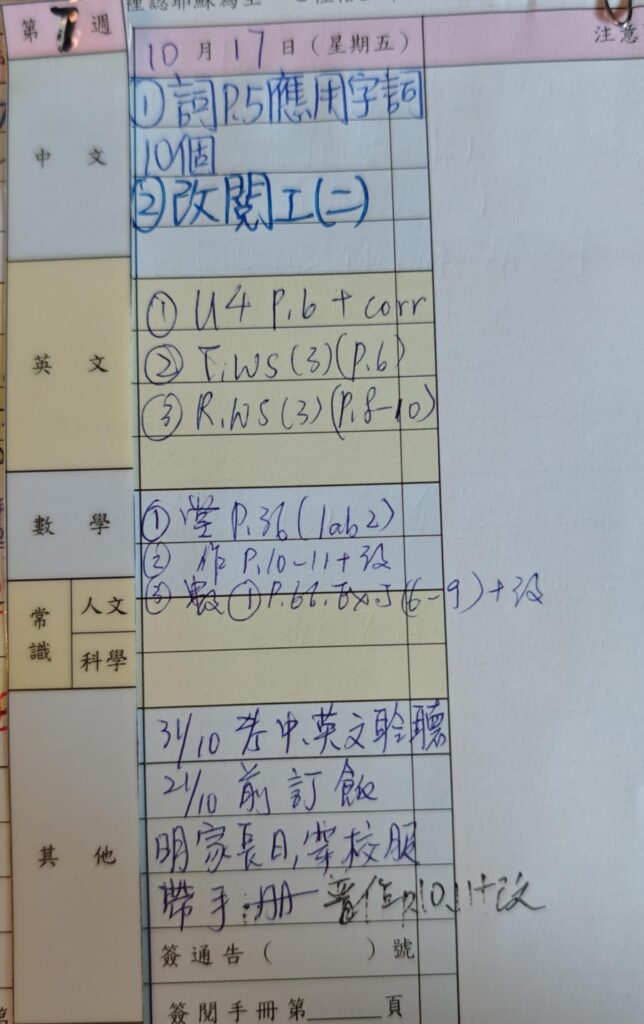 裡認耶穌為主
第 7 週
10 月 17 日 (星期五)
注意
中文
① 詞 P.5 應用字詞
10個
② 改閱工(二)
英文
① U4 P.6 + corr
② F.WS (3) (P.6)
③ R.WS (3) (P.8-10)
數學
① 堂 P.36 (1ab2)
② 作 P.10-11+改
③ 數① P.66. Ex.5 (6-9) + 改
常識
人文
科學
其他
31/10 考中、英文聆聽
21/10 前訂飯
明家長日,穿校服
帶手冊 P.10.11+改
簽通告 ( ) 號
簽閱手冊第______頁